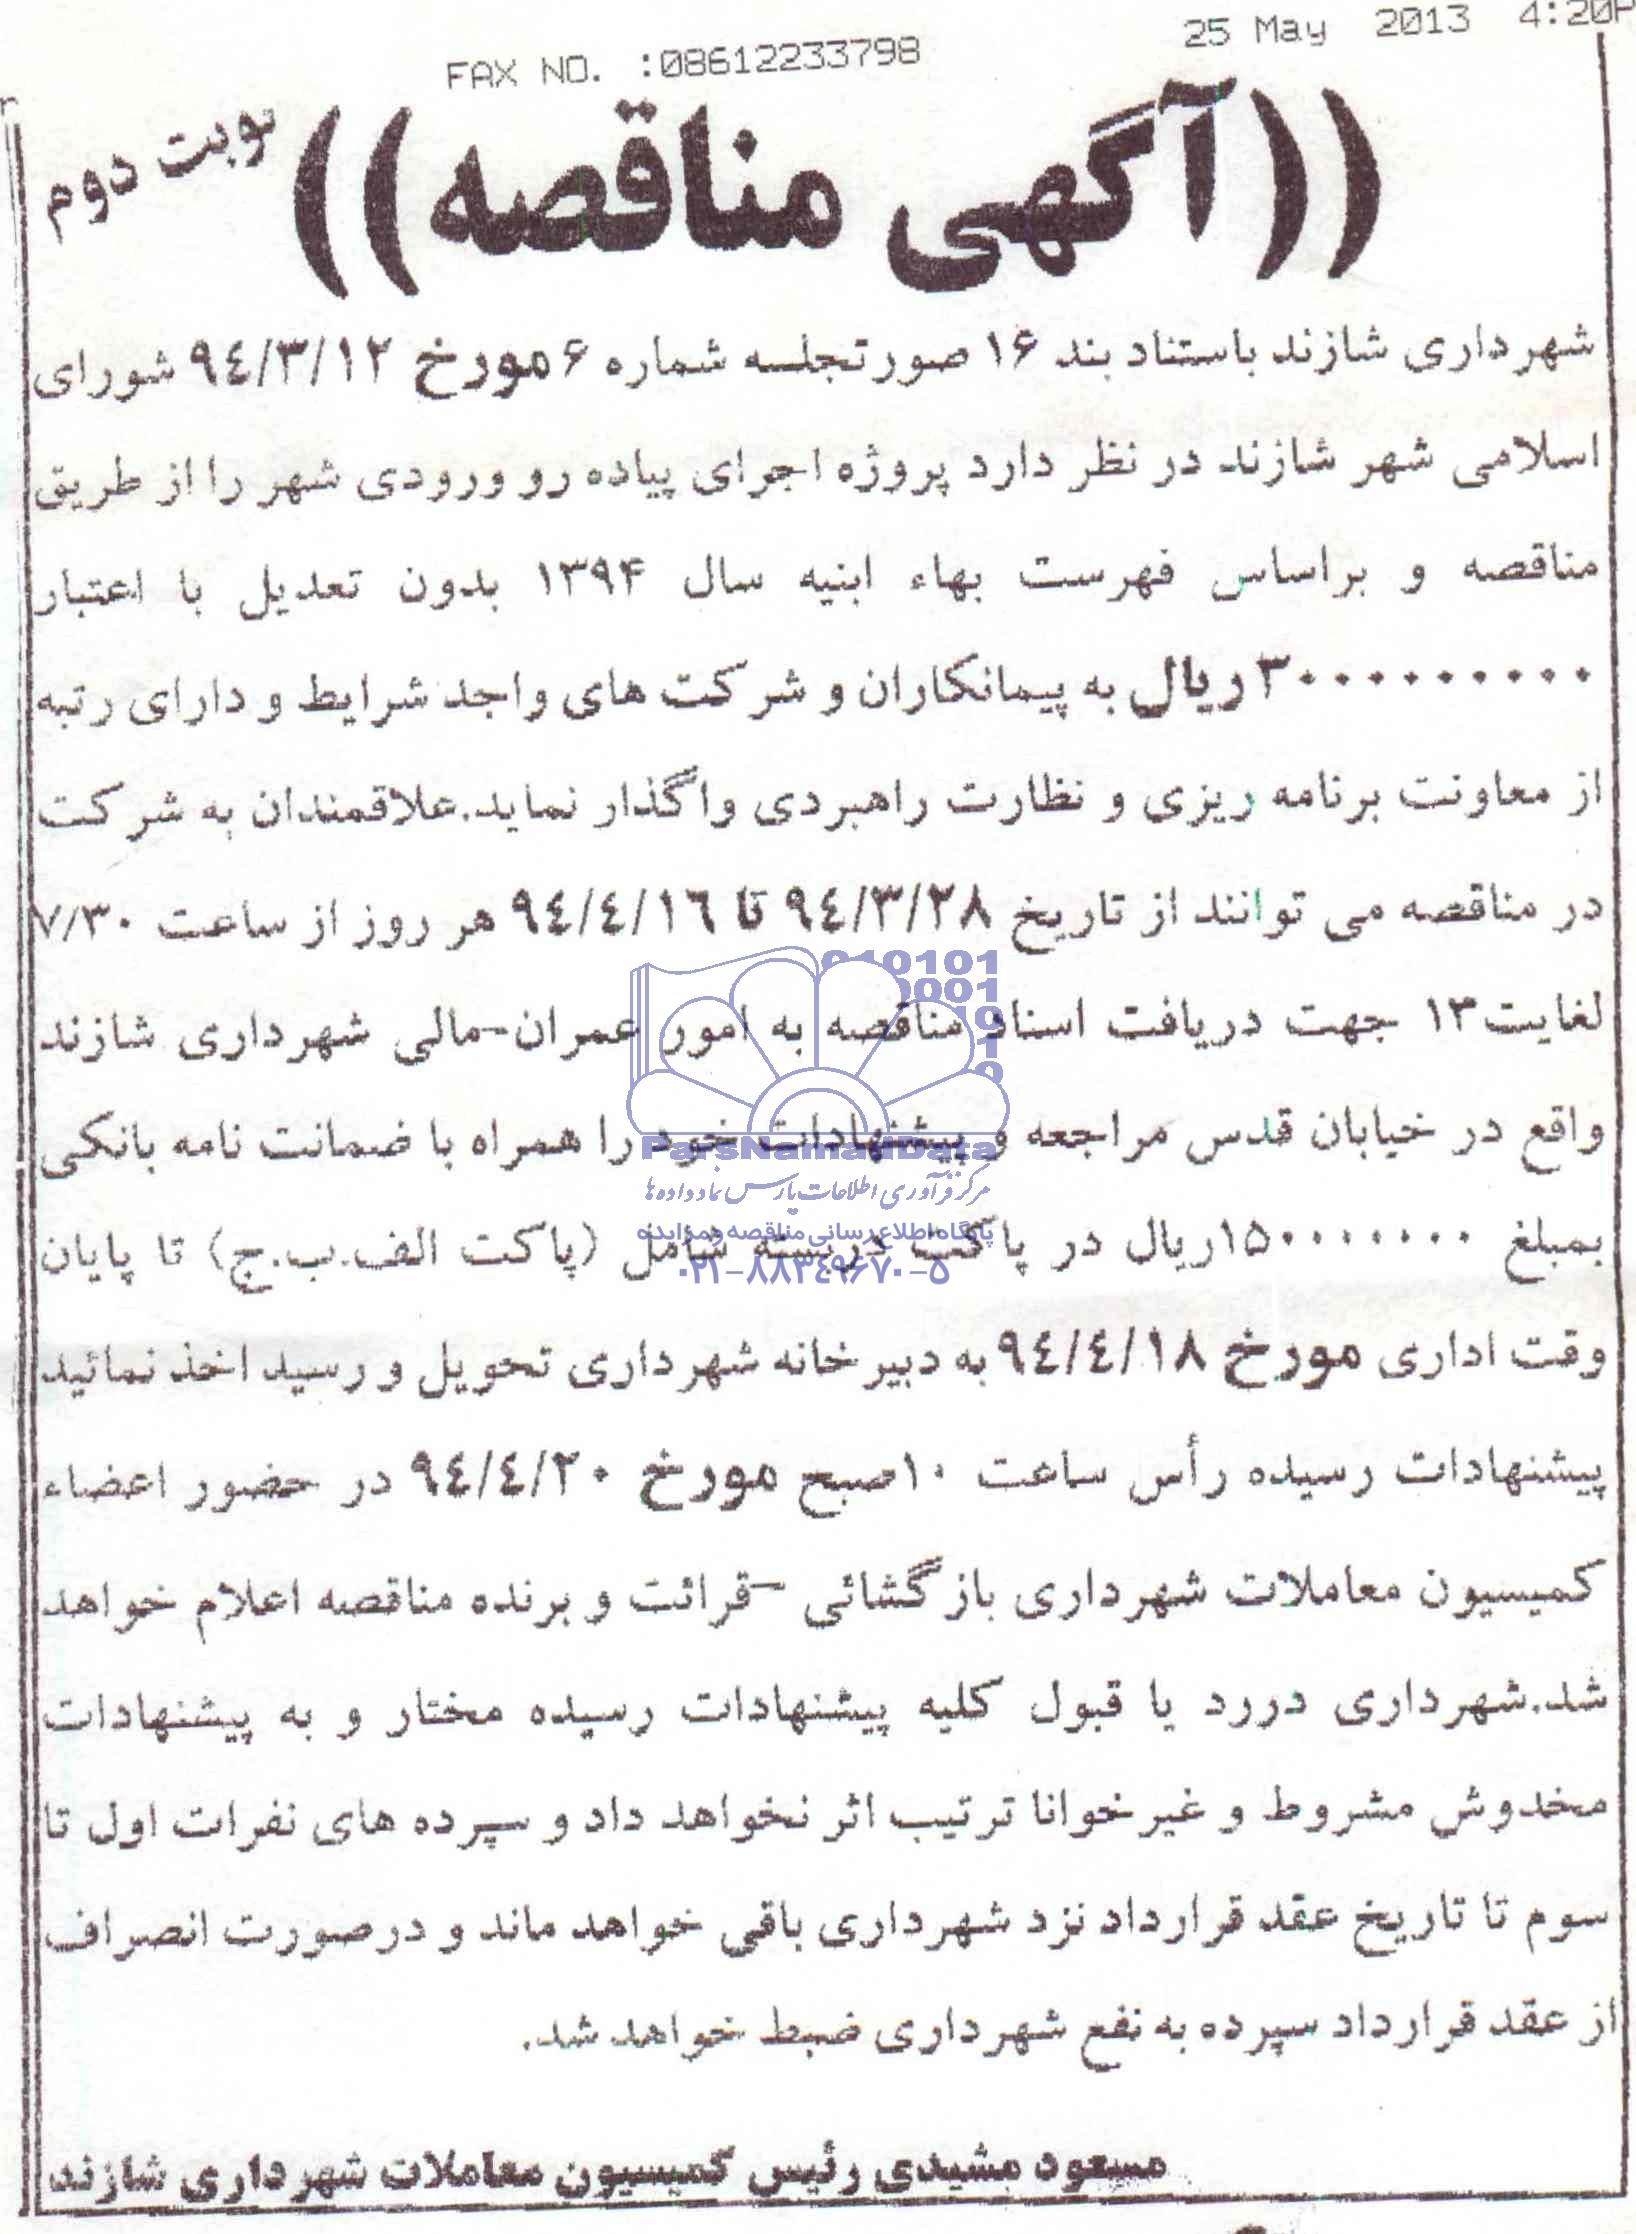 25 May 2013 4:20P
FAX NO. :08612233798
نوبت دوم
((آگهی مناقصه))
شهرداری شازند باستناد بند ۱۶ صورتجلسه شماره ۶ مورخ ۹٤/۳/۱۲ شورای
اسلامی شهر شازند در نظر دارد پروژه اجرای پیاده رو ورودی شهر را از طریق
مناقصه و براساس فهرست بهاء ابنیه سال ۱۳۹۴ بدون تعدیل با اعتبار
۳۰۰۰۰۰۰۰۰۰ ریال به پیمانکاران و شرکت های واجد شرایط و دارای رتبه
از معاونت برنامه ریزی و نظارت راهبردی واگذار نماید.علاقمندان به شرکت
در مناقصه می توانند از تاریخ ۹٤/۳/۲۸ تا ۹٤/٤/۱٦ هر روز از ساعت ۷/۳۰
لغایت۱۳ جهت دریافت اسناد مناقصه به امور عمران-مالی شهرداری شازند
واقع در خیابان قدس مراجعه و پیشنهادات خود را همراه با ضمانت نامه بانکی
بمبلغ ۱۵۰۰۰۰۰۰۰ریال در پاکت دربسته شامل (پاکت الف.ب.ج) تا پایان
وقت اداری مورخ ۹٤/٤/۱۸ به دبیرخانه شهرداری تحویل و رسید اخذ نمائید
پیشنهادات رسیده رأس ساعت ۱۰صبح مورخ ۹٤/٤/۲۰ در حضور اعضاء
کمیسیون معاملات شهرداری بازگشائی -قرائت و برنده مناقصه اعلام خواهد
شد.شهرداری دررد یا قبول کلیه پیشنهادات رسیده مختار و به پیشنهادات
مخدوش مشروط و غیرخوانا ترتیب اثر نخواهد داد و سپرده های نفرات اول تا
سوم تا تاریخ عقد قرارداد نزد شهرداری باقی خواهد ماند و درصورت انصراف
از عقد قرارداد سپرده به نفع شهرداری ضبط خواهد شد.
مسعود مشیدی رئیس کمیسیون معاملات شهرداری شازند
ParsNamadData
مرکز فرآوری اطلاعات پارس نماد داده ها
پایگاه اطلاع رسانی مناقصه و مزایده
۰۲۱-۸۸۳٤۹۶۷۰-۵